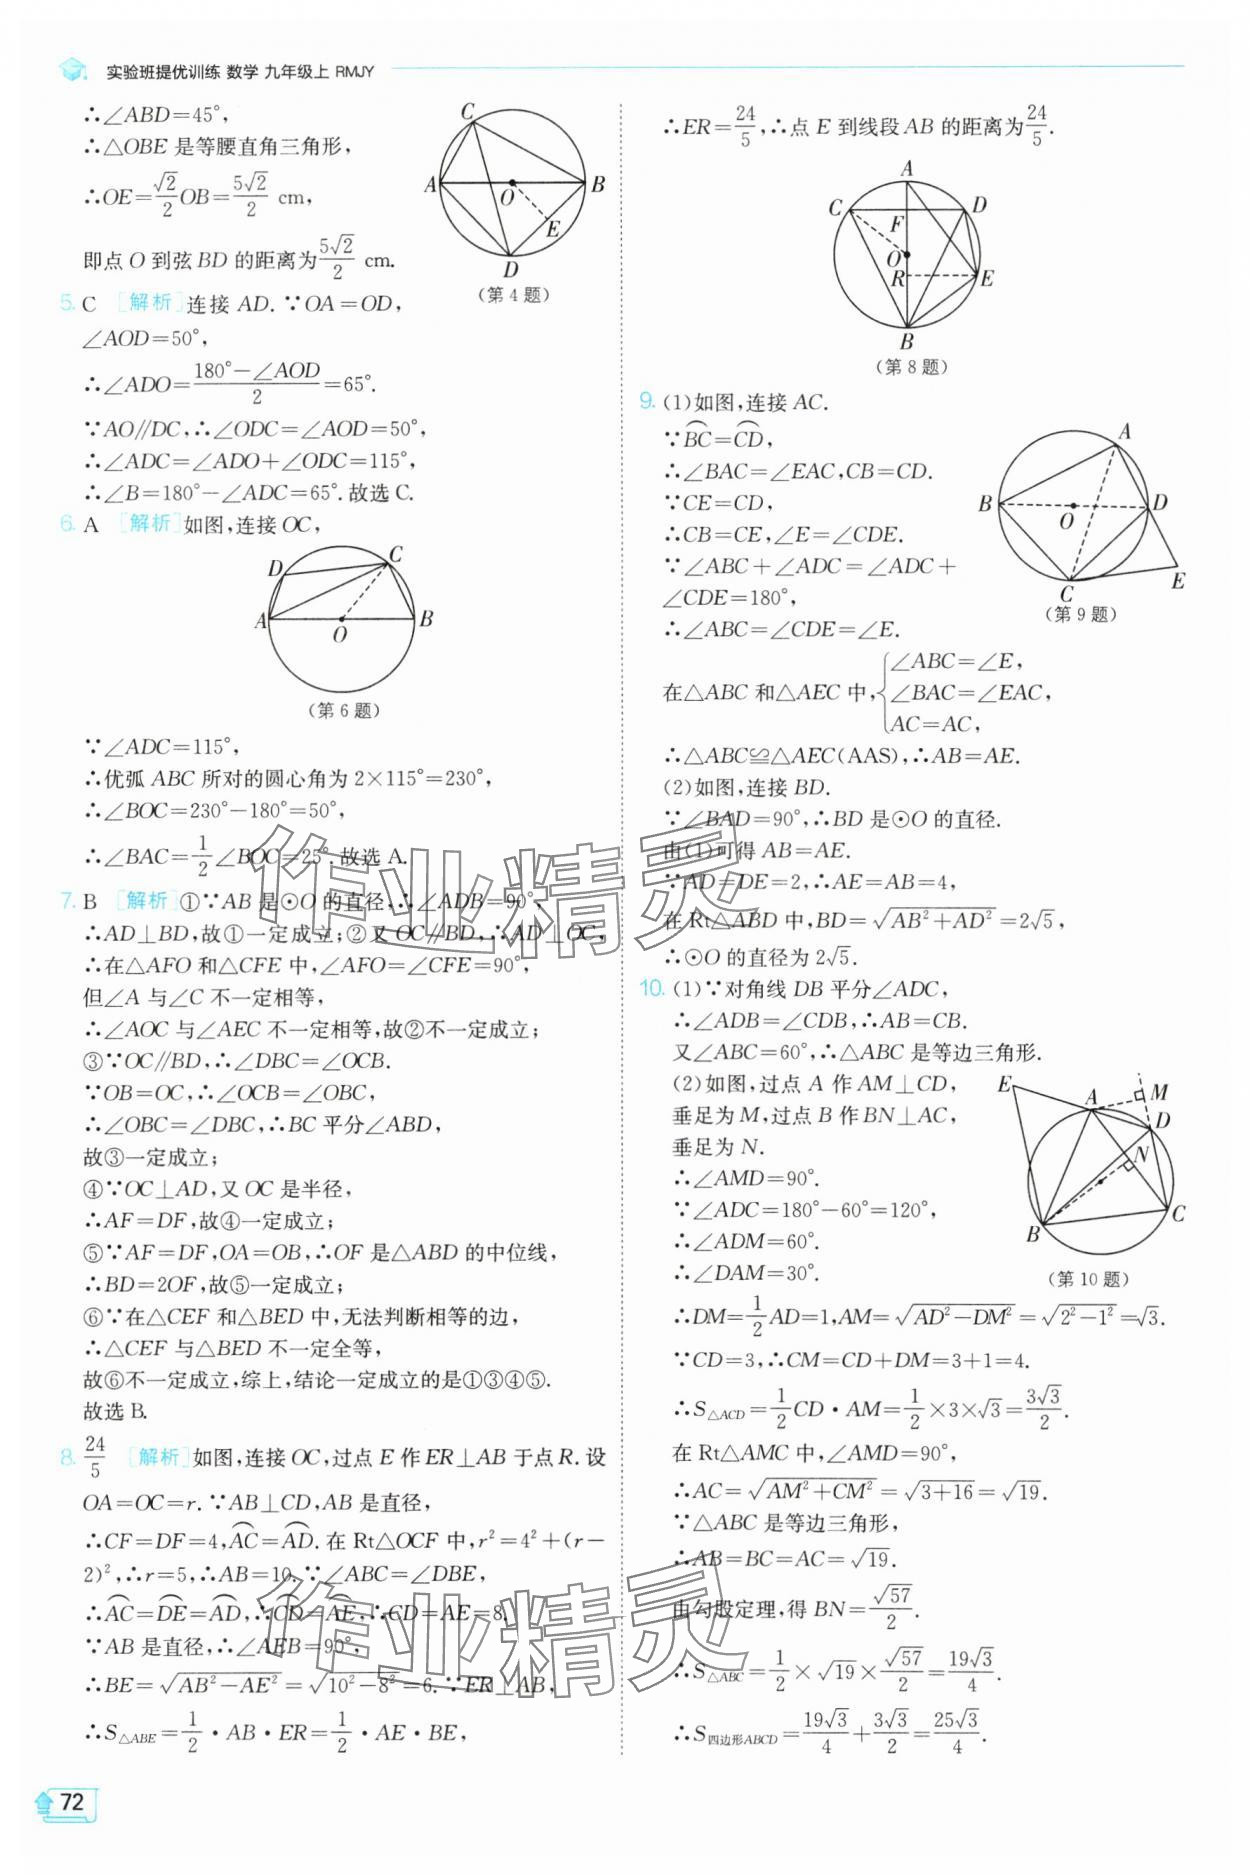 实验班提优训练 数学 九年级上 RMJY
∴∠ABD=45°,
∴△OBE 是等腰直角三角形,
∴OE=√2/2 OB=5√2/2 cm,
即点 O 到弦 BD 的距离为5√2/2 cm.
C
A
O
B
E
D
(第 4 题)
5. C [解析]连接 AD.∵OA=OD,
∠AOD=50°,
∴∠ADO=(180°-∠AOD)/2=65°.
∵AO∥DC,∴∠ODC=∠AOD=50°,
∴∠ADC=∠ADO+∠ODC=115°,
∴∠B=180°-∠ADC=65°.故选 C.
6. A [解析]如图,连接 OC,
D
C
A
O
B
(第 6 题)
∵∠ADC=115°,
∴优弧 ABC 所对的圆心角为 2×115°=230°,
∴∠BOC=230°-180°=50°,
∴∠BAC=1/2∠BOC=25°.故选 A.
7. B [解析]①∵AB 是⊙O 的直径,∴∠ADB=90°,
∴AD⊥BD,故①一定成立;②又 OC∥BD,∴AD⊥OC,
∴在△AFO 和△CFE 中,∠AFO=∠CFE=90°,
但∠A 与∠C 不一定相等,
∴∠AOC 与∠AEC 不一定相等,故②不一定成立;
③∵OC∥BD,∴∠DBC=∠OCB.
∵OB=OC,∴∠OCB=∠OBC,
∴∠OBC=∠DBC,∴BC 平分∠ABD,
故③一定成立;
④∵OC⊥AD,又 OC 是半径,
∴AF=DF,故④一定成立;
⑤∵AF=DF,OA=OB,∴OF 是△ABD 的中位线,
∴BD=2OF,故⑤一定成立;
⑥∵在△CEF 和△BED 中,无法判断相等的边,
∴△CEF 与△BED 不一定全等,
故⑥不一定成立,综上,结论一定成立的是①③④⑤.
故选 B.
8. 24/5 [解析]如图,连接 OC,过点 E 作 ER⊥AB 于点 R.设
OA=OC=r.∵AB⊥CD,AB 是直径,
∴CF=DF=4,⌒AC=⌒AD.在 Rt△OCF 中,r²=4²+(r-
2)²,∴r=5,∴AB=10.∵∠ABC=∠DBE,
∴⌒AC=⌒DE=⌒AD,∴⌒CD=⌒AE,∴CD=AE=8.
∵AB 是直径,∴∠AEB=90°,
∴BE=√(AB²-AE²)=√(10²-8²)=6.∵ER⊥AB,
∴S△ABE=1/2·AB·ER=1/2·AE·BE,
72
∴ER=24/5,∴点 E 到线段 AB 的距离为24/5.
A
C
D
F
O
R
E
B
(第 8 题)
9. (1)如图,连接 AC.
∵⌒BC=⌒CD,
∴∠BAC=∠EAC,CB=CD.
∵CE=CD,
∴CB=CE,∠E=∠CDE.
∵∠ABC+∠ADC=∠ADC+
∠CDE=180°,
∴∠ABC=∠CDE=∠E.
A
B
D
O
C
E
(第 9 题)
在△ABC 和△AEC 中,{∠ABC=∠E,
∠BAC=∠EAC,
AC=AC,
∴△ABC≌△AEC(AAS),∴AB=AE.
(2)如图,连接 BD.
∵∠BAD=90°,∴BD 是⊙O 的直径.
由(1)可得 AB=AE.
∵AD=DE=2,∴AE=AB=4,
在 Rt△ABD 中,BD=√(AB²+AD²)=2√5,
∴⊙O 的直径为 2√5.
10. (1)∵对角线 DB 平分∠ADC,
∴∠ADB=∠CDB,∴AB=CB.
又∠ABC=60°,∴△ABC 是等边三角形.
(2)如图,过点 A 作 AM⊥CD,
垂足为 M,过点 B 作 BN⊥AC,
垂足为 N.
∴∠AMD=90°.
∵∠ADC=180°-60°=120°,
∴∠ADM=60°.
∴∠DAM=30°.
E
A
M
D
N
B
C
(第 10 题)
∴DM=1/2AD=1,AM=√(AD²-DM²)=√(2²-1²)=√3.
∵CD=3,∴CM=CD+DM=3+1=4.
∴S△ACD=1/2CD·AM=1/2×3×√3=3√3/2.
在 Rt△AMC 中,∠AMD=90°,
∴AC=√(AM²+CM²)=√(3+16)=√19.
∵△ABC 是等边三角形,
∴AB=BC=AC=√19.
由勾股定理,得 BN=√57/2.
∴S△ABC=1/2×√19×√57/2=19√3/4.
∴S四边形ABCD=19√3/4+3√3/2=25√3/4.
作业精灵
作业精灵